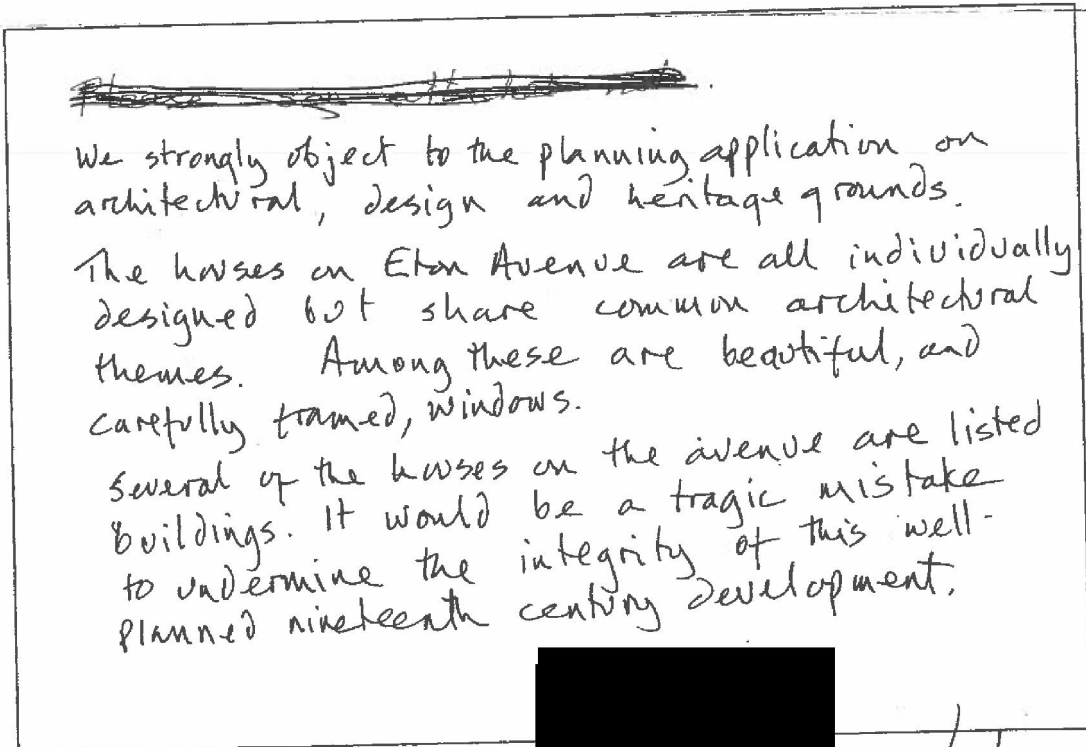 We strongly object to the planning application on
architectural, design and heritage grounds.
The houses on Eton Avenue are all individually
designed but share common architectural
themes. Among these are beautiful, and
carefully framed, windows.
Several of the houses on the avenue are listed
buildings. It would be a tragic mistake
to undermine the integrity of this well-
planned nineteenth century development.